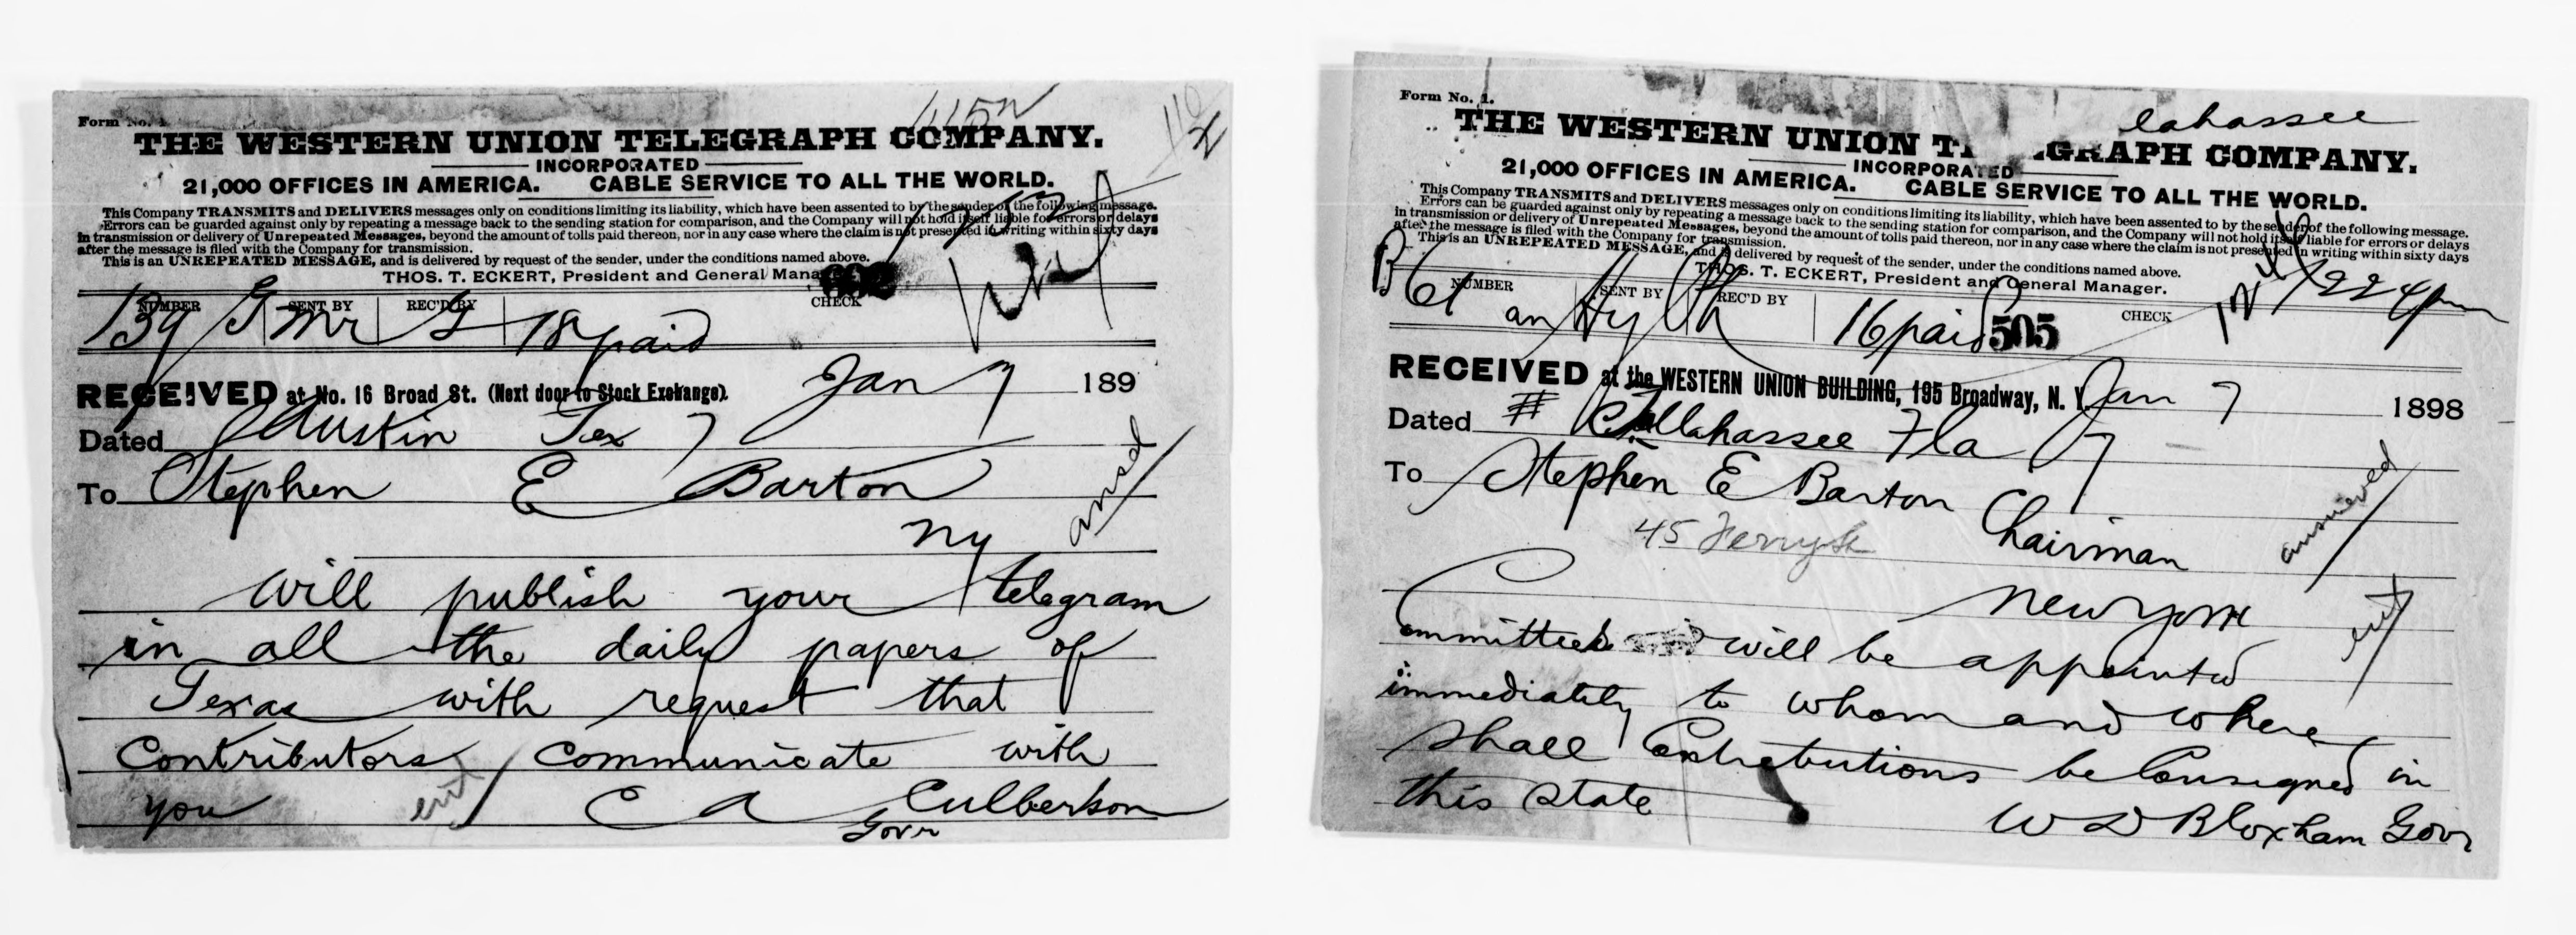 Form No. 1.
THE WESTERN UNION TELEGRAPH COMPANY.
INCORPORATED
21,000 OFFICES IN AMERICA. CABLE SERVICE TO ALL THE WORLD.
This Company TRANSMITS and DELIVERS messages only on conditions limiting its liability, which have been assented to by the sender of the following message.
Errors can be guarded against only by repeating a message back to the sending station for comparison, and the Company will not hold itself liable for errors or delays
in transmission or delivery of Unrepeated Messages, beyond the amount of tolls paid thereon, nor in any case where the claim is not presented in writing within sixty days
after the message is filed with the Company for transmission.
This is an UNREPEATED MESSAGE, and is delivered by request of the sender, under the conditions named above.
THOS. T. ECKERT, President and General Mana
NUMBER SENT BY REC'D BY CHECK
139 G mr 18 paid
RECEIVED at No. 16 Broad St. (Next door to Stock Exchange). Jan 7 189
Dated Austin Tex 7
To Stephen E Barton
ansd
Ny
Will publish your telegram
in all the daily papers of
Texas with request that
Contributors communicate with
you C A Culberson
ent
Govr
lahassee
Form No. 1.
THE WESTERN UNION T GRAPH COMPANY.
INCORPORATED
21,000 OFFICES IN AMERICA. CABLE SERVICE TO ALL THE WORLD.
This Company TRANSMITS and DELIVERS messages only on conditions limiting its liability, which have been assented to by the sender of the following message.
Errors can be guarded against only by repeating a message back to the sending station for comparison, and the Company will not hold itself liable for errors or delays
in transmission or delivery of Unrepeated Messages, beyond the amount of tolls paid thereon, nor in any case where the claim is not presented in writing within sixty days
after the message is filed with the Company for transmission.
This is an UNREPEATED MESSAGE, and is delivered by request of the sender, under the conditions named above.
THOS. T. ECKERT, President and General Manager.
NUMBER SENT BY REC'D BY CHECK
16 paid 505
RECEIVED at the WESTERN UNION BUILDING, 195 Broadway, N. Y. Jan 7 1898
Dated # Tallahassee Fla 7
To Stephen E Barton Chairman
45 Ferry St
answered
New York
Committees will be appointed
ent
immediately to whom and where
shall Contributions be Consigned in
this state
W D Bloxham Govr